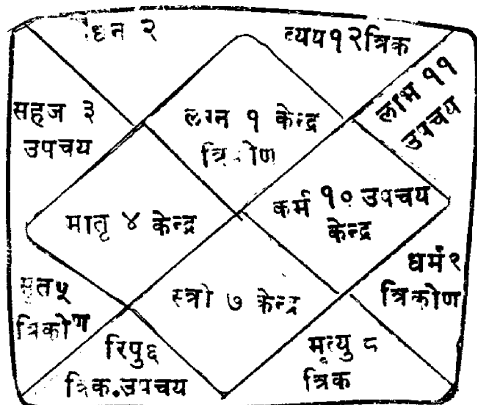 धन २
व्यय१२त्रिक
सहज ३
उपचय
लग्न १ केन्द्र
त्रिकोण
लाभ ११
उपचय
मातृ ४ केन्द्र
कर्म १० उपचय
केन्द्र
सुत५
त्रिकोण
स्त्री ७ केन्द्र
धर्म९
त्रिकोण
रिपु६
त्रिक.उपचय
मृत्यु ८
त्रिक